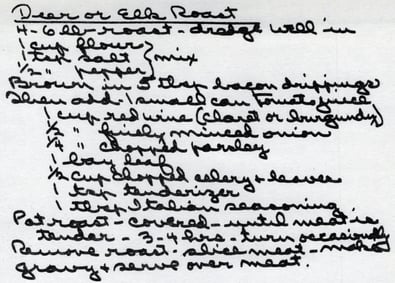 Deer or Elk Roast
4-6 lb-roast-dredge well in
1 cup flour
1 tsp salt } mix
1/2 " pepper
Brown in 5 tbsp bacon drippings
Then add 1 small can Tomato juice
1 cup red wine (Claret or burgundy)
1/2 " finely minced onion
1/4 " chopped parsley
1 bay leaf
1/2 cup chopped celery + leaves
1 tsp tenderizer
1 tbsp Italian seasoning
Pot roast - covered - until meat is
tender - 3-4 hrs - turn occasionally
Remove roast - slice meat - make
gravy + serve over meat.